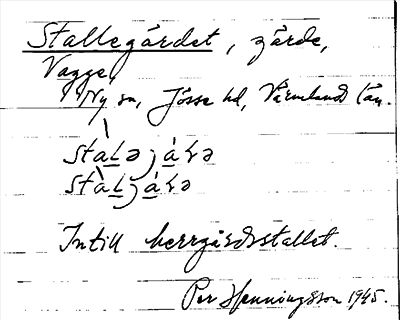 Stallegärdet, gärde,
Vagge,
Ny sn, Jösse hd, Värmlands län.
Intill herrgårdsstallet.
Per Henningsson 1945.